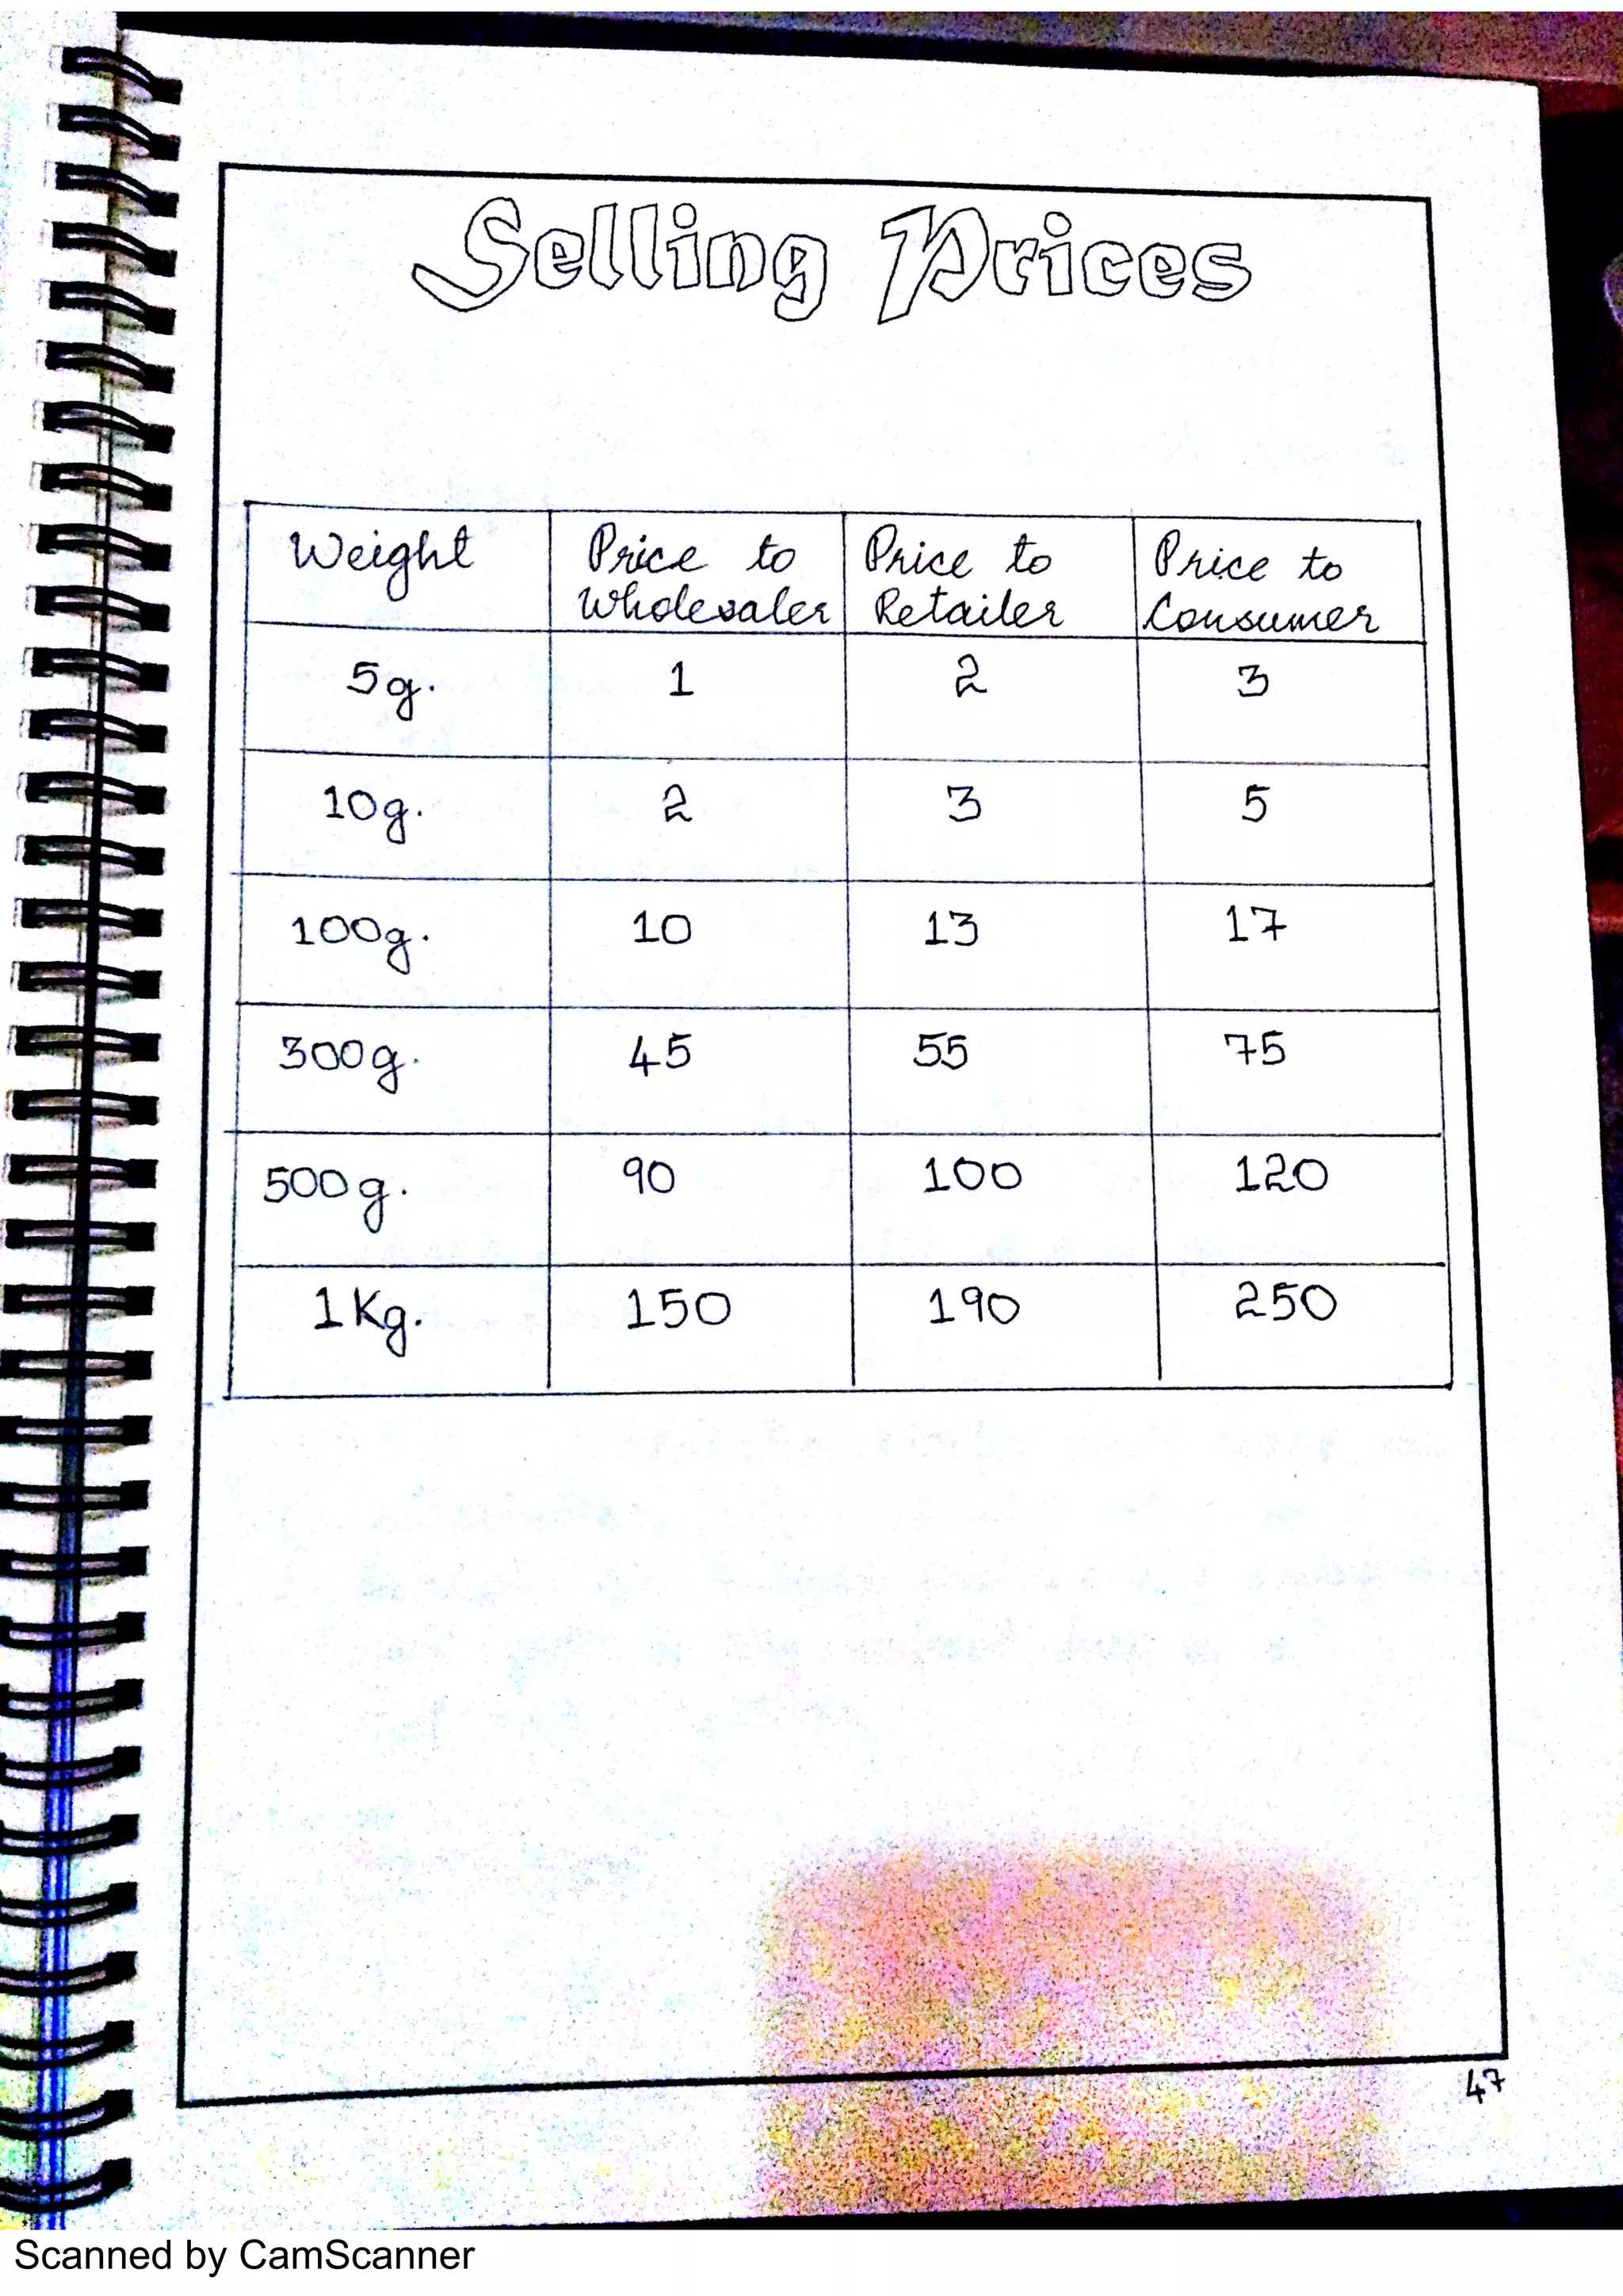 Selling Prices
Weight Price to Wholesaler Price to Retailer Price to Consumer
5g. 1 2 3
10g. 2 3 5
100g. 10 13 17
300g. 45 55 75
500g. 90 100 120
1Kg. 150 190 250
47
Scanned by CamScanner